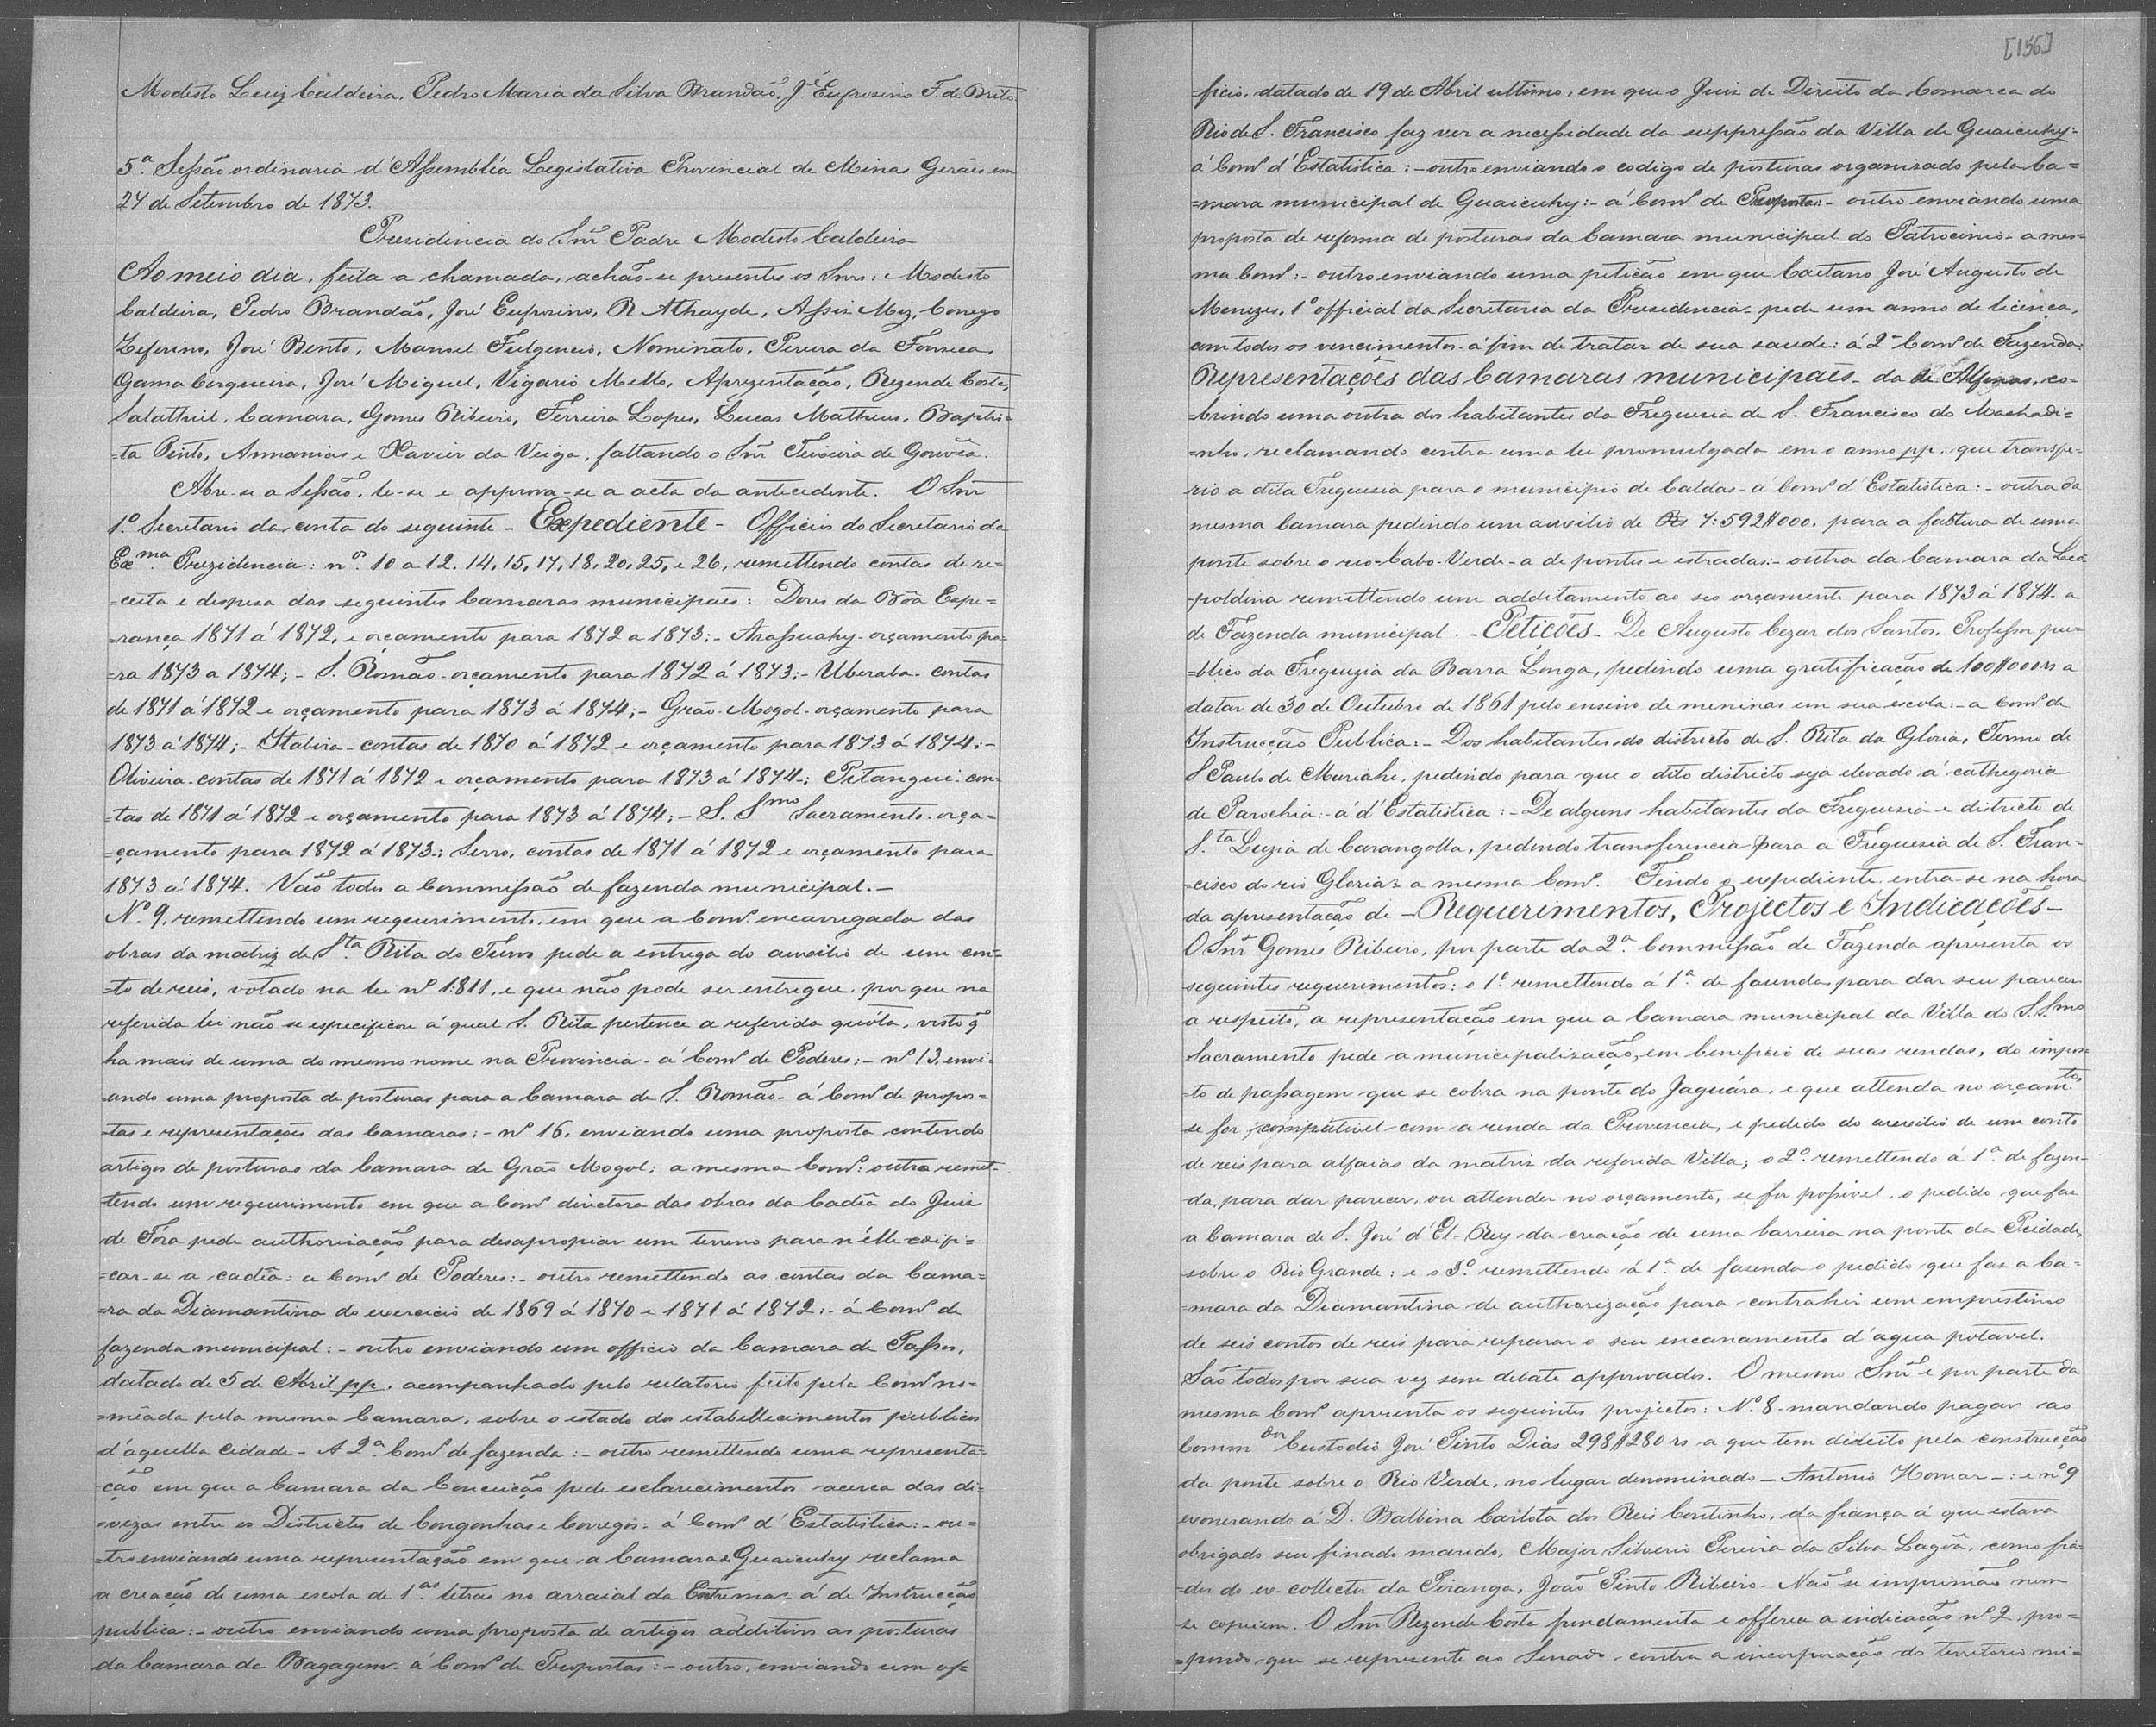 Modesto Luiz Caldeira, Pedro Maria da Silva Brandão, Jé Eufrosino F. de Brito
5ª Sessão ordinaria d'Assembléa Legislativa Provincial de Minas Geraes em
24 de Setembro de 1873.
Presidencia do Snr Padre Modesto Caldeira
Ao meio dia, feita a chamada, achão-se presentes os Snrs: Modesto
Caldeira, Pedro Brandão, José Eufrosino, R Athayde, Assis Miz, Conego
Zeferino, José Bento, Manoel Fulgencio, Nominato, Pereira da Fonseca,
Gama Cerqueira, José Miguel, Vigario Mello, Aprezentação, Rezende Costa,
Salathiel, Camara, Gomes Ribeiro, Ferreira Lopes, Lucas Mattheus, Baptis-
=ta Pinto, Annanias e Xavier da Veiga, faltando o Snr Teixeira de Gouvêa.
Abre-se a Sessão, le-se e approva-se a acta da antecedente. O Snr
1º Secretario da conta do seguinte - Expediente - Officios do Secretario da
Exma. Prezidencia: nos. 10 a 12, 14, 15, 17, 18, 20, 25, e 26, remettendo contas de re=
=ceita e dispesa das seguintes Camaras municipaes: Dores da Bôa Espe=
=rança 1871 á 1872, e orçamento para 1872 a 1873; - Arassuahy - orçamento pa-
=ra 1873 a 1874; - S. Romão - orçamento para 1872 á 1873; - Uberaba - contas
de 1871 á 1872 e orçamento para 1873 á 1874; - Grão-Mogol - orçamento para
1873 á 1874; - Itabira - contas de 1870 á 1872 e orçamento para 1873 á 1874; -
Oliveira - contas de 1871 á 1872 e orçamento para 1873 á 1874 -; Pitangui - con-
=tas de 1871 á 1872 e orçamento para 1873 á 1874; - S. Smo Sacramento - orça-
=çamento para 1872 á 1873.; Serro, contas de 1871 á 1872 e orçamento para
1873 á 1874. Vão todos a Commissão de fazenda municipal. -
Nº 9, remettendo um requerimento, em que a Comm encarregada das
obras da matriz de Sta. Rita do Turvo pede a entrega do auxilio de um con=
=to de reis, votado na lei nº 1:811, e que não pode ser entregue, por que na
referida lei não se especificou á qual S. Rita pertence a referida quóta, visto q̃
ha mais de uma do mesmo nome na Provincia - á Comm de Poderes: - nº 13, envi-
=ando uma proposta de posturas para a Camara de S. Romão - á Comm de propos=
=tas e representações das Camaras: - nº 16, enviando uma proposta contendo
artigos de posturas da Camara de Grão Mogol: a mesma Comm: outro remet-
tendo um requerimento em que a Comm directora das obras da Cadêa do Juiz
de Fóra pede authorisação para desapropiar um terreno para n'elle edifi=
=car-se a cadêa: a Comm de Poderes: - outro remettendo as contas da Cama=
=ra da Diamantina do exercicio de 1869 á 1870 e 1871 á 1872: - á Comm de
fazenda municipal: - outro enviando um officio da Camara de Passos,
datado de 5 de Abril pp. acompanhado pelo relatorio feito pela Comm no=
=meada pela mesma Camara, sobre o estado dos estabellecimentos publicos
d'aquella Cidade - A 2ª Comm de fazenda: - outro remettendo uma representa=
=ção em que a Camara da Conceição pede esclarecimentos acerca das di=
=vizas entre os Districtos de Congonhas e Corregos: á Comm d'Estatistica: - ou=
=tro enviando uma representação em que a Camara de Guaicuhy reclama
a creação de uma escola de 1as letras no arraial da Extrema - á de Instrucção
publica: - outro enviando uma proposta de artigos additivos as posturas
da Camara da Bagagem - á Comm de Propostas: - outro, enviando um of=
[156]
=ficio, datado de 19 de Abril ultimo, em que o Juiz de Direito da Comarca do
Rio de S. Francisco faz ver a necessidade da suppressão da Villa de Guaicuhy=
á Comm d'Estatistica: - outro enviando o codigo de posturas organisado pela Ca=
=mara municipal de Guaicuhy: - á Comm de Propostas: - outro enviando uma
proposta de reforma de posturas da Camara municipal do Patrocinio - a mes=
ma Comm: - outro enviando uma petição em que Caetano José Augusto de
Menezes, 1º official da Secretaria da Presidencia - pede um anno de licença,
com todos os vencimentos - á fim de tratar de sua saude: á 2ª Comm de Fazenda:
Representações das Camaras municipaes - da de Alfenas, co-
=brindo uma outra dos habitantes da Freguesia de S. Francisco do Machadi=
=nho, reclamando contra uma lei promulgada em o anno pp. que transfe-
rio a dita Freguesia para o municipio de Caldas - á Comm d'Estatistica: - outra da
mesma Camara pedindo um auxilio de Rs 7:592$000, para a factura de uma
ponte sobre o rio=Cabo-Verde - a de pontes e estradas: - outra da Camara da Leo-
-poldina remettendo um additamento ao seo orçamento para 1873 á 1874 - a
de Fazenda municipal. - Petições - De Augusto Cezar dos Santos, Professor pu=
=blico da Freguezia da Barra Longa, pedindo uma gratificação de 100$000 rs a
datar de 30 de Outubro de 1861 pelo ensino de meninas em sua escola: - a Comm de
Instrucção Publica: - Dos habitantes do districto de S. Rita da Gloria, Termo de
S Paulo de Muriahé, pedindo para que o dito districto seja elevado á cathegoria
de Parochia: - á d'Estatistica: - De alguns habitantes da Freguesia e districto de
S.ta Luzia de Carangolla, pedindo transferencia para a Freguesia de S. Fran-
=cisco do rio Gloria: a mesma Comm. Findo o expediente entra-se na hora
da apresentação de - Requerimentos, Projectos e Indicações -
O Snr Gomes Ribeiro, por parte da 2ª Commissão de Fazenda apresenta os
seguintes requerimentos: o 1º remettendo á 1ª de fazenda para dar seu parecer
a respeito, a representação em que a Camara municipal da Villa do S. Smo
Sacramento pede a municipalização, em beneficio de suas rendas, do impos=
=to de passagem que se cobra na ponte do Jaguára, e que attenda no orçamto,
se for compativel com a renda da Provincia, e pedido do auxilio de um conto
de reis para alfaias da matriz da referida Villa; o 2º remettendo á 1ª de fazen-
-da, para dar parecer, ou attender no orçamento, se for possivel, o pedido que faz
a Camara de S. José d'El-Rey da creação de uma barreira na ponte da Piedade,
sobre o Rio Grande: e o 3º remettendo á 1ª de fazenda o pedido que faz a Ca=
=mara da Diamantina de authorização para contrahir um emprestimo
de seis contos de reis para reparar o seu encanamento d'agua potavel.
São todos por sua vez sem debate approvados. O mesmo Snr e por parte da
mesma Comm apresenta os seguintes projectos: Nº 8 - mandando pagar ao
Commdor Custodio José Pinto Dias 298$280 rs a que tem direito pela construcção
da ponte sobre o Rio Verde, no lugar denominado - Antonio Homar -: e nº 9
exonerando á D. Balbina Carlota dos Reis Coutinho, da fiança á que estava
obrigado seu finado marido, Major Silverio Pereira da Silva Lagôa, como fia-
=dor do ex-collector da Piranga, João Pinto Ribeiro - Não se imprimão nem
se copiem. O Snr Rezende Costa fundamenta e offerece a indicação nº 2, pro=
=pondo que se represente ao Senado, contra a incorporação do territorio mi=